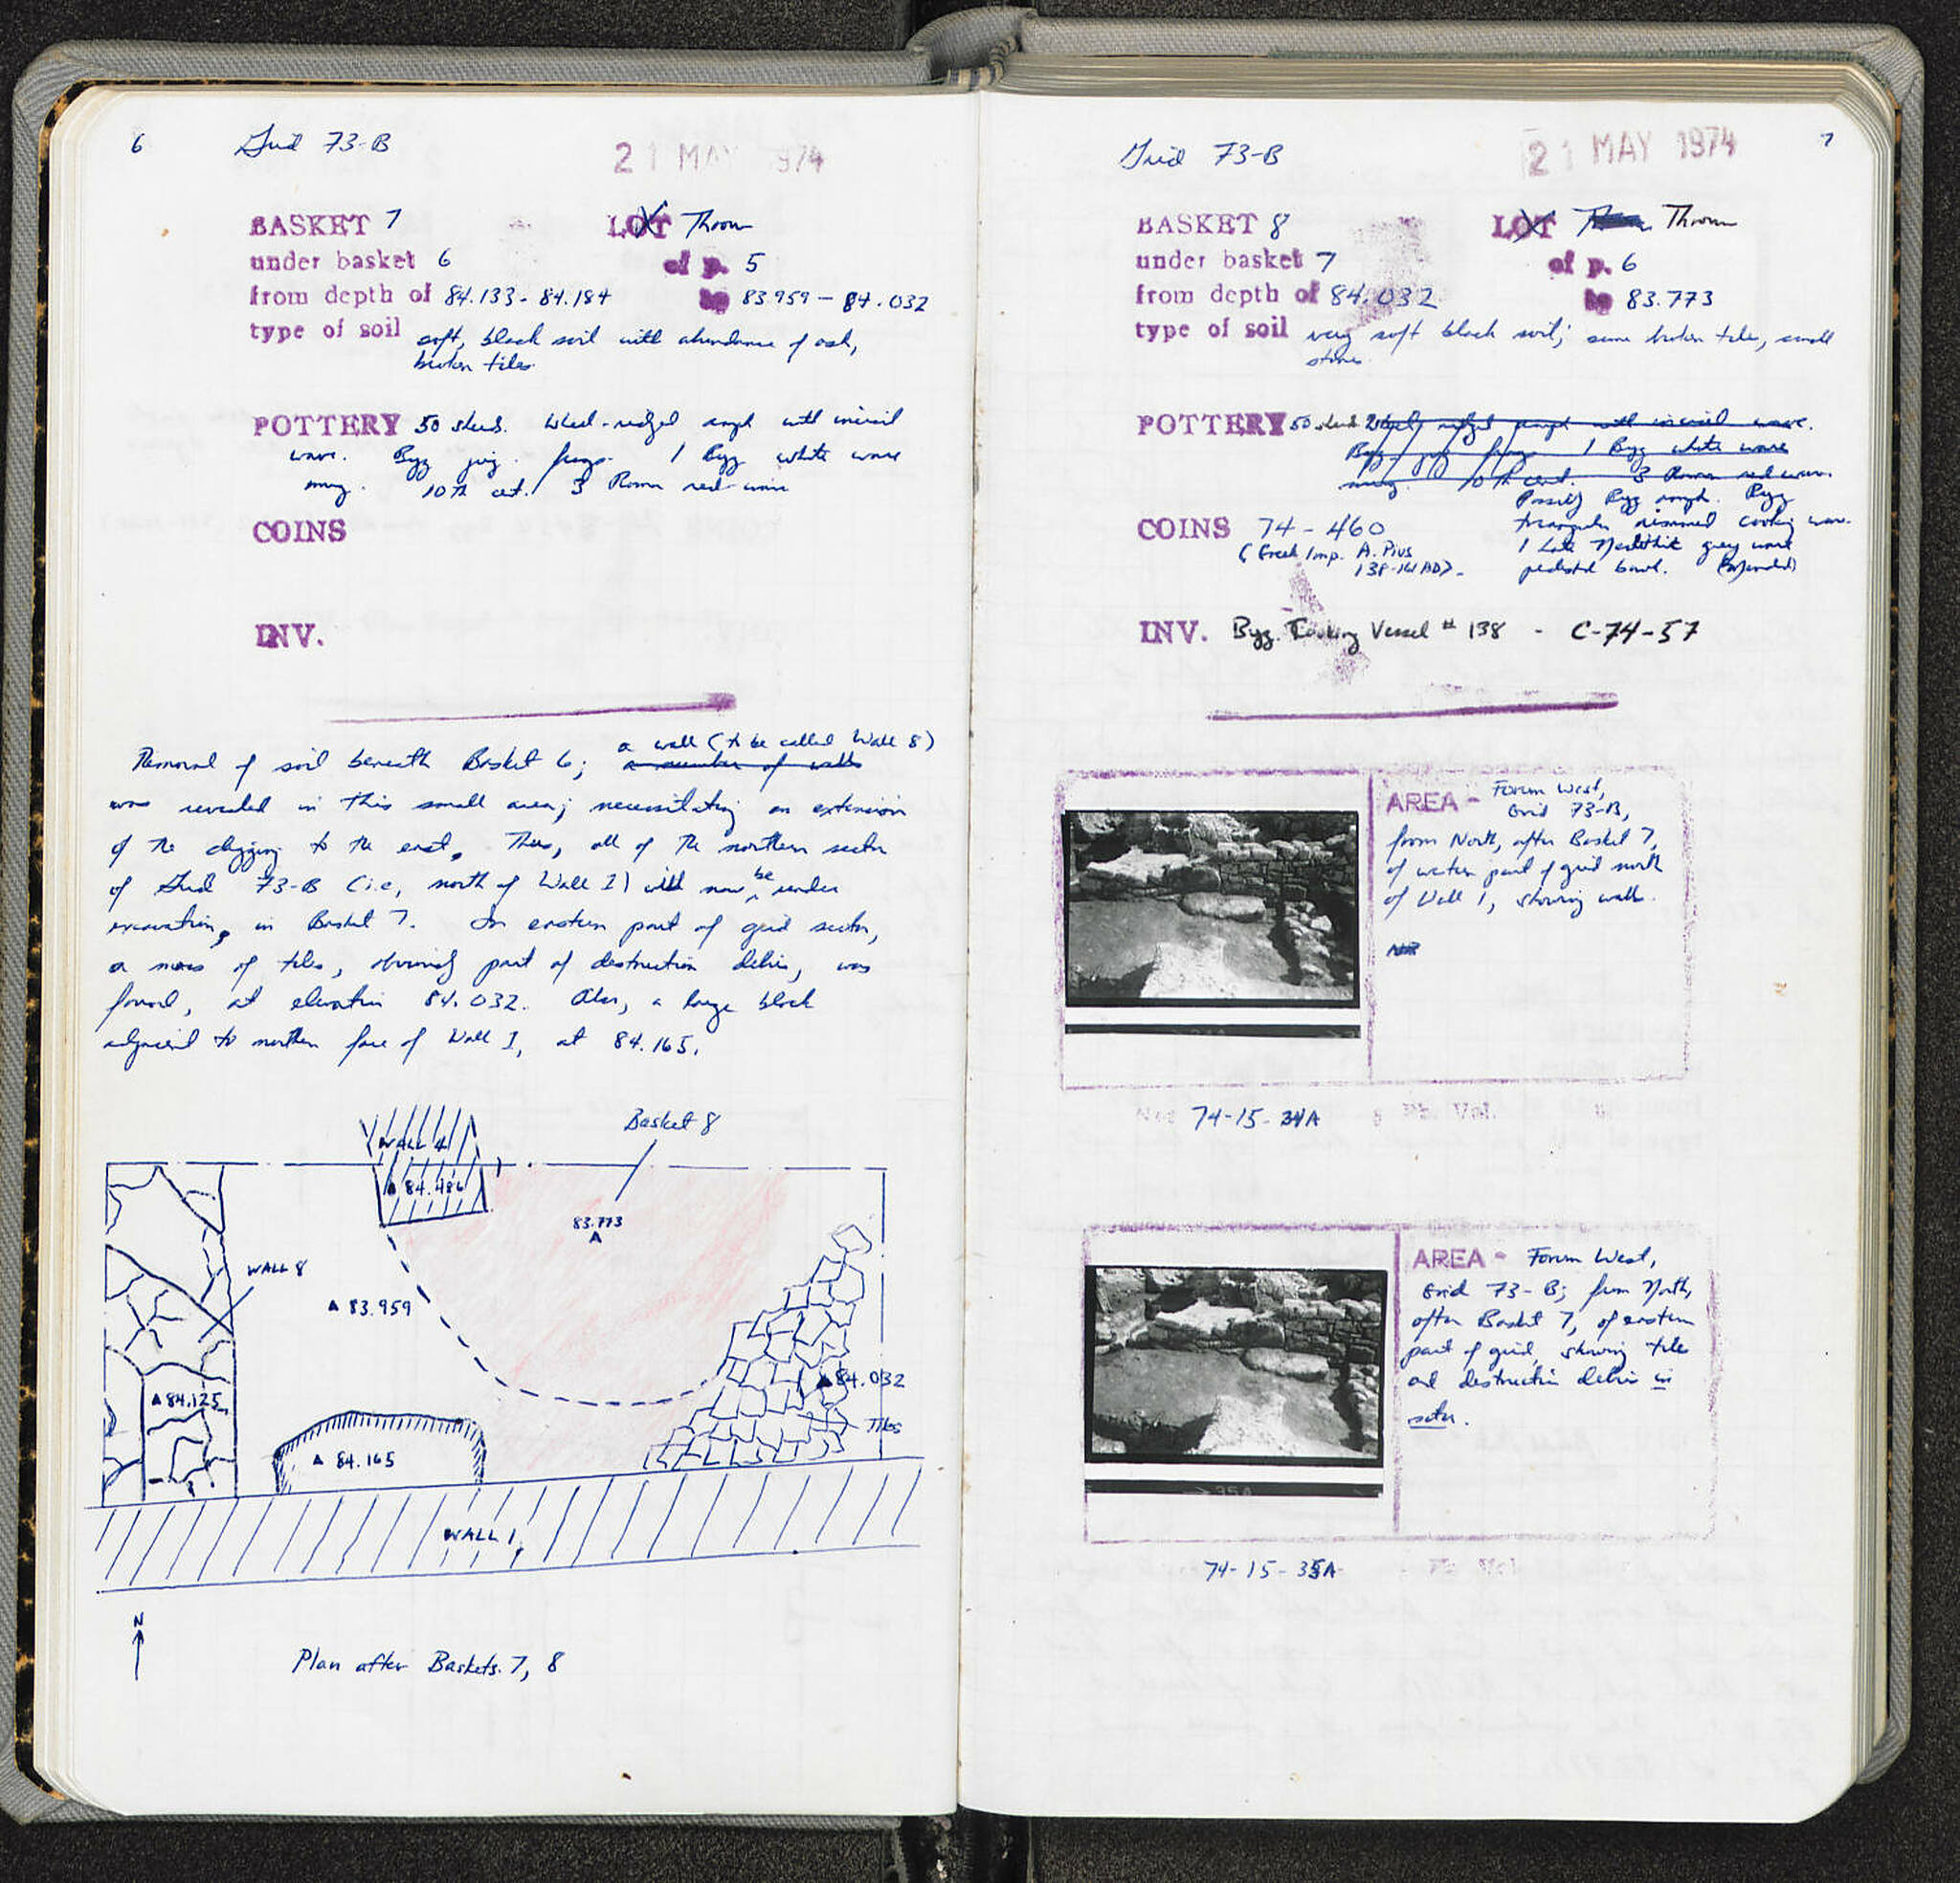 6 Grid 73-B 21 MAY 974
BASKET 7 LOT Thrown
under basket 6 of p. 5
from depth of 84.133-84.184 to 83.959 - 84.032
type of soil soft, black soil with abundance of ash,
broken tiles.
POTTERY 50 sherds. Wheel-ridged amph with incised
wave. Byz jug. frags. 1 Byz white ware
mug. 10th cent. 3 Roman red ware
COINS
INV.
a wall (to be called Wall 8)
Removal of soil beneath Basket 6; a number of walls
was revealed in this small area; necessitating an extension
of the digging to the east. Thus, all of the northern sector
of Grid 73-B (i.e, north of Wall 1) will now be under
excavation, in Basket 7. In eastern part of grid sector,
a mass of tiles, obviously part of destruction debris, was
found, at elevation 84.032. Also, a large block
adjacent to northern face of Wall 1, at 84.165.
Basket 8
WALL 4
84.486
83.773
WALL 8
83.959
84.032
84.125
Tiles
84.165
WALL 1
N
Plan after Baskets 7, 8
Grid 73-B 21 MAY 1974 7
BASKET 8 LOT Thrown
under basket 7 of p. 6
from depth of 84.032 to 83.773
type of soil very soft black soil; some broken tile, small
stones.
POTTERY 50 sherds wheel ridged amph with incised wave.
Byz jug frags 1 Byz white ware
mug. 10th cent. 3 Roman red ware.
Possibly Byz amph. Byz
triangular rimmed cooking ware.
COINS 74-460
1 Late Neolithic grey ware
(Greek Imp. A. Pius
138-161 AD).
pedestal bowl.
INV. Byz. Cooking Vessel # 138 - C-74-57
AREA - Forum West,
Grid 73-B,
from North, after Basket 7,
of western part of grid north
of Wall 1, showing walls.
74-15-34A
AREA - Forum West,
Grid 73-B; from North,
after Basket 7, of eastern
part of grid, showing tile
and destruction debris in
situ.
35A
74-15-35A